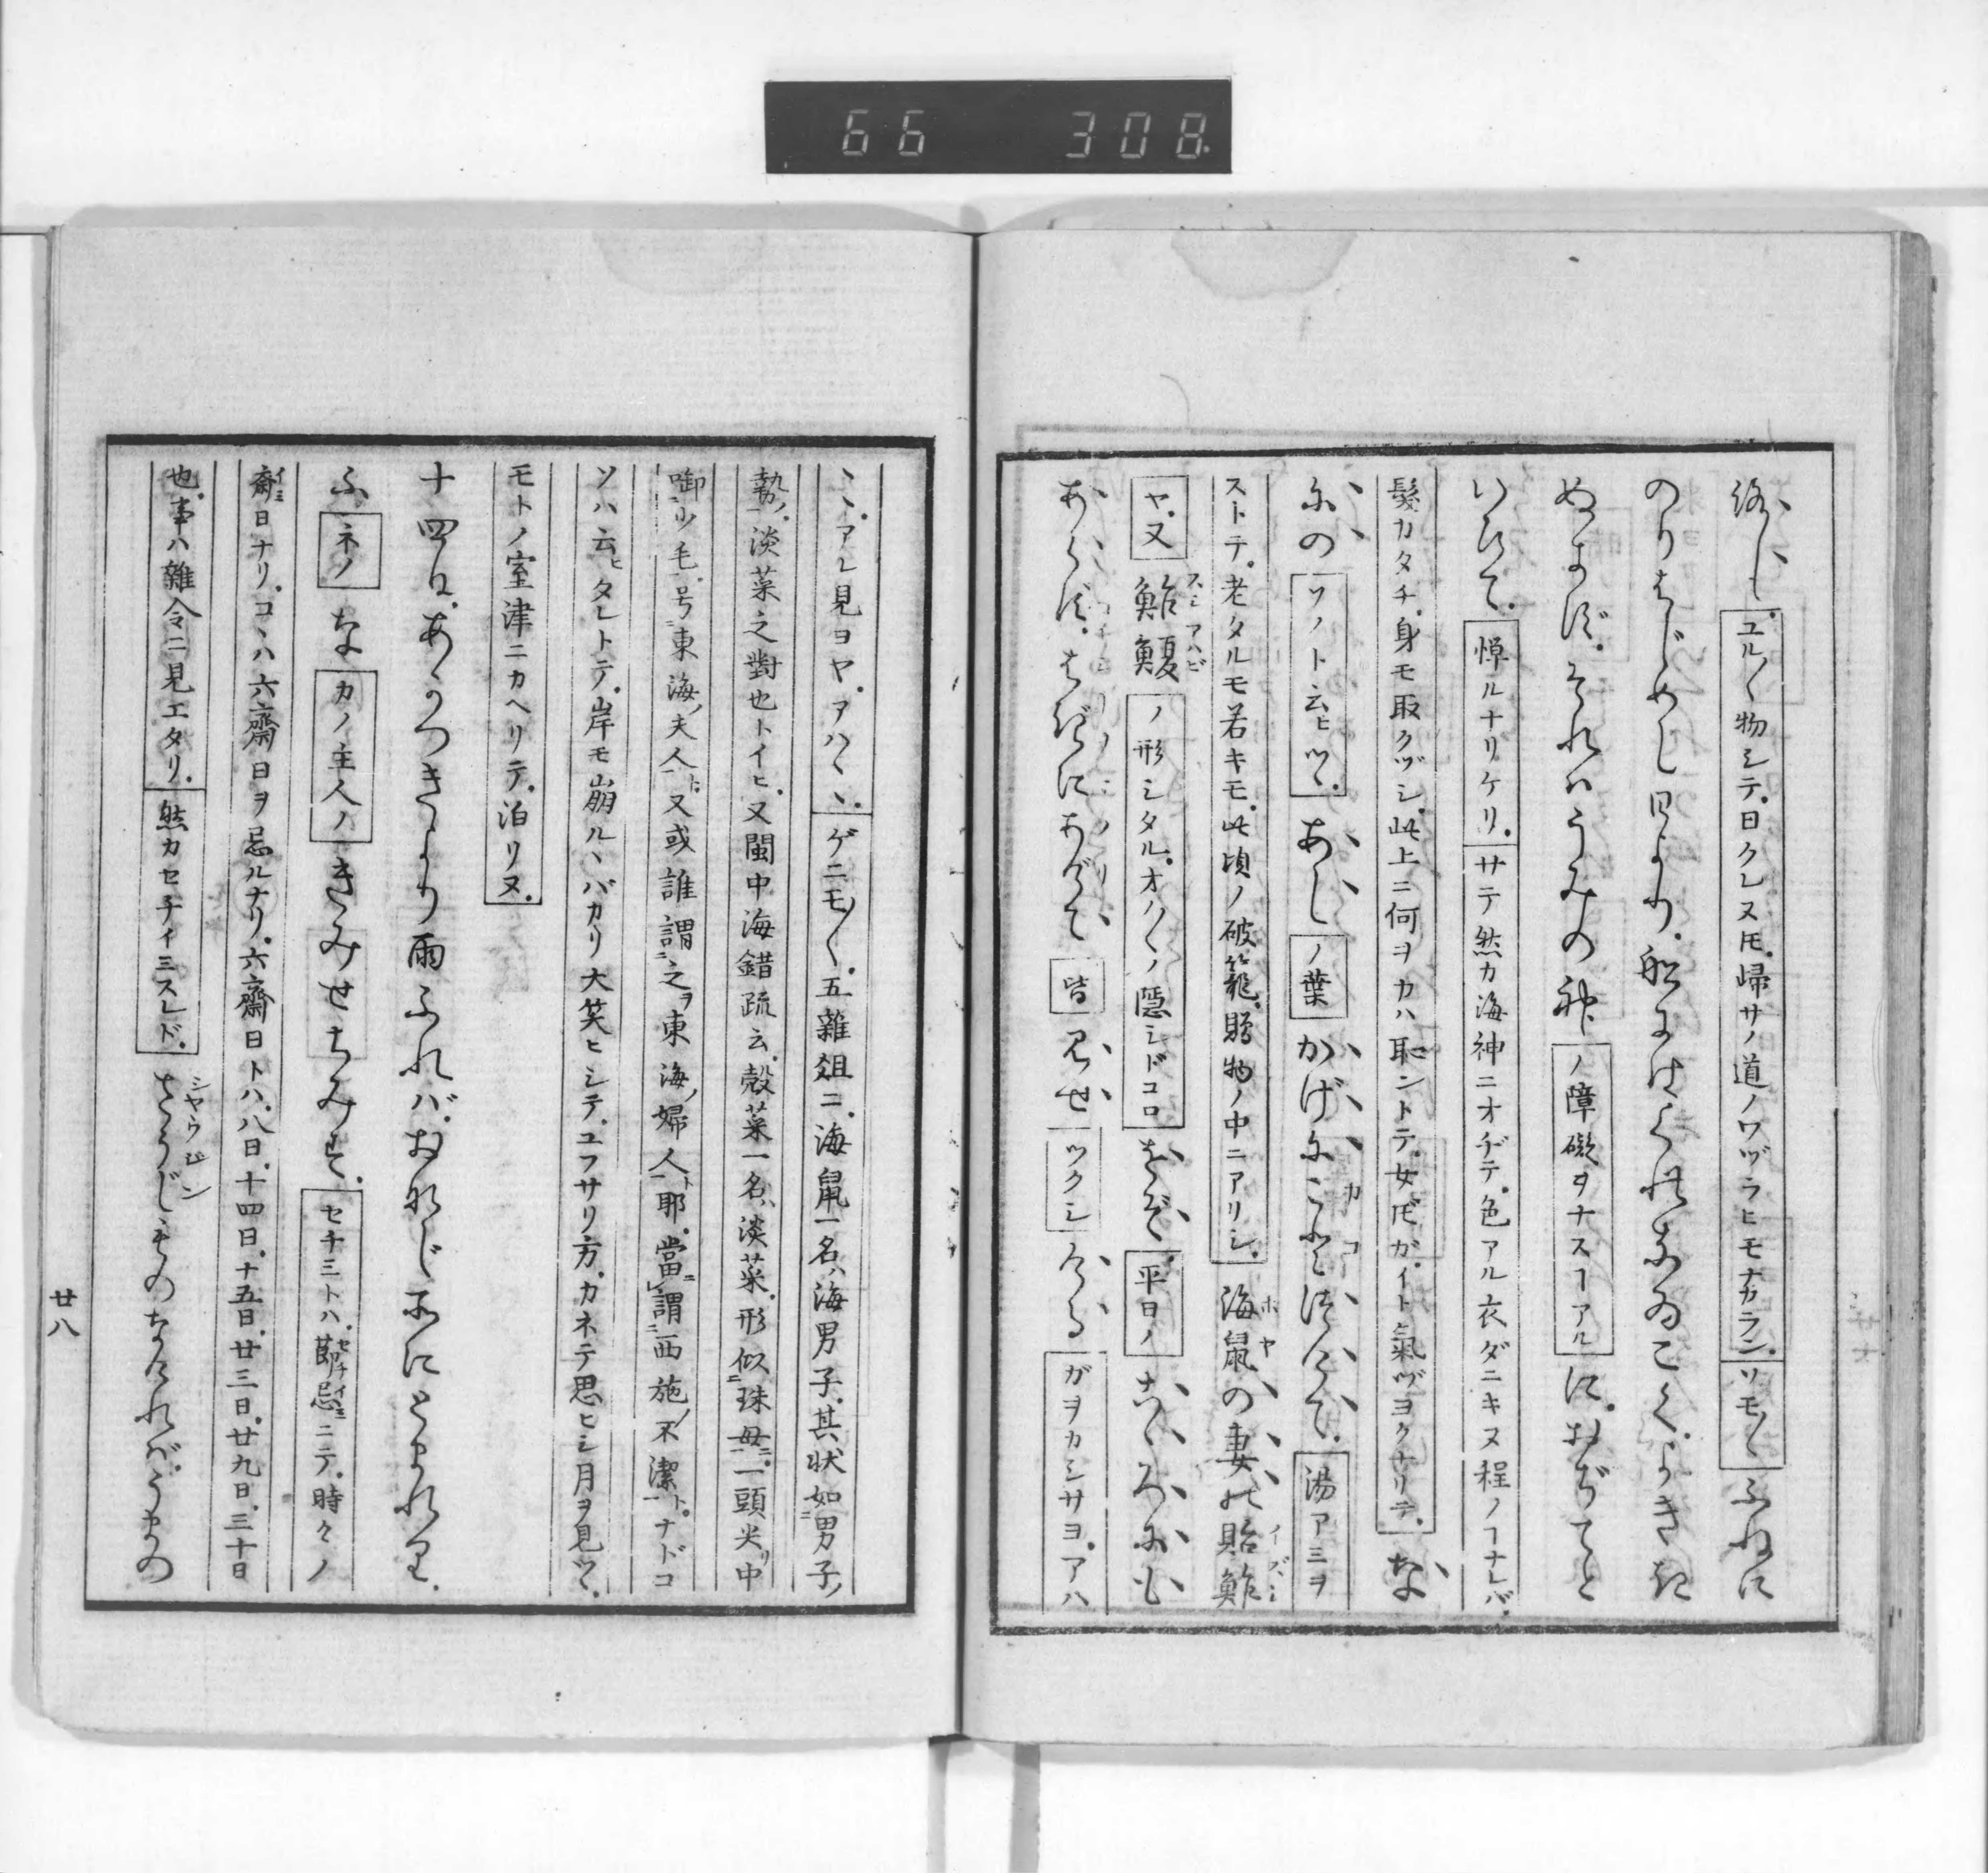 浴し。ユル〳〵物シテ。日クレヌ𪜈。歸サノ道ノワヅラヒモナカラン。ソモ〳〵ふねに
のりはじめし日より。船にはくれなゐこく。よきき
ぬきず。それはうみの神ノ障礙ヲナスヿアルに。おぢてと
いひて。憚ルナリケリ。サテ然カ海神ニオヂテ。色アル衣ダニキヌ程ノヿナレバ。
髮カタチ。身モ取クヅシ。此上ニ何ヲカハ恥ントテ。女𪜈ガ。イト氣ヅヨクナリテ。な
にのソノト云ヒツヽ。あしノ葉かげにことつけて。湯アミヲ
ストテ。老タルモ若キモ。此頃ノ破籠。贈物ノ中ニアリシ。海鼠の妻の貽鮓
ヤ。又鮨鰒ノ形シタル。オノ〳〵ノ隱シドコロをぞ。平日ノこゝろにも
あらず。はぎにあげて皆見せツクシけるガヲカシサヨ。アハ
ヽヽ。アレ見ヨヤ。アハヽヽ。ゲニモ〳〵。五雜爼ニ。海鼠一名ハ海男子。其状如男子ノ
勢ノ。淡菜之對也トイヒ。又閩中海錯疏云。殼菜一名ハ淡菜。形似珠母ニ。一頭尖リ中
啣少毛。号東海ノ夫人ト。又或誰謂之ヲ東海ノ婦人ト耶。當謂西施ノ不潔ト。ナドコ
ソハ云ヒタレトテ。岸モ崩ルヽバカリ大笑ヒシテ。ユフサリ方。カネテ思ヒシ月ヲ見ツヽ。
モトノ室津ニカヘリテ。泊リヌ。
十四日。あかつきより雨ふれバ。おなじ所にとまれり。
ふネノなカノ主人ノきみせちみす。セチミトハ。節忌ニテ。時々ノ
齋日ナリ。コヽハ六齋日ヲ忌ルナリ。六齋日トハ。八日。十四日。十五日。廿三日。廿九日。三十日
也。事ハ雜令ニ見エタリ。然カセチイミスレド。さうじものなければ。うまの
廿八